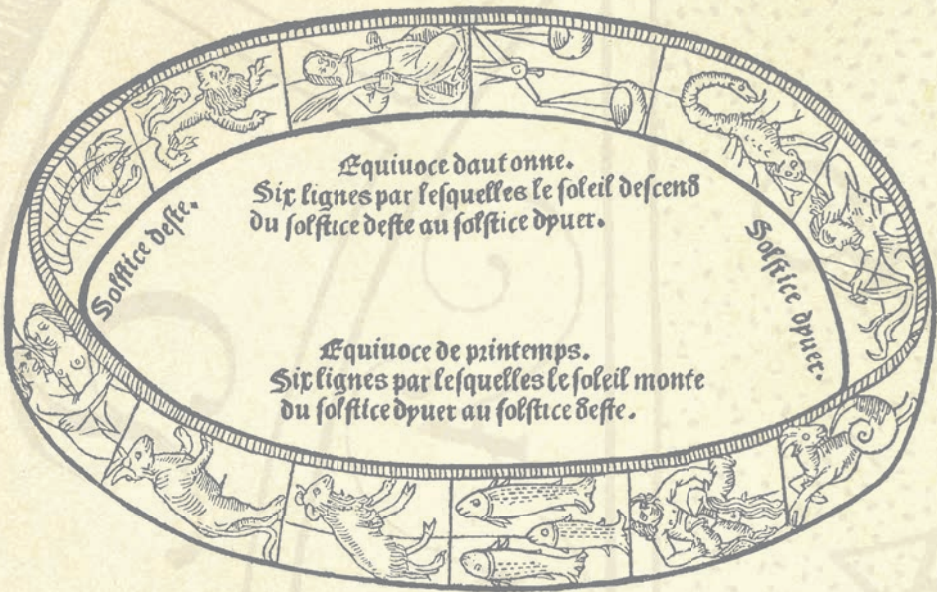 Equiuoce dautonne.
Six lignes par lesquelles le soleil descend
du solstice deste au solstice dyuer.
Solstice deste.
Solstice dyuer.
Equiuoce de printemps.
Six lignes par lesquelles le soleil monte
du solstice dyuer au solstice deste.